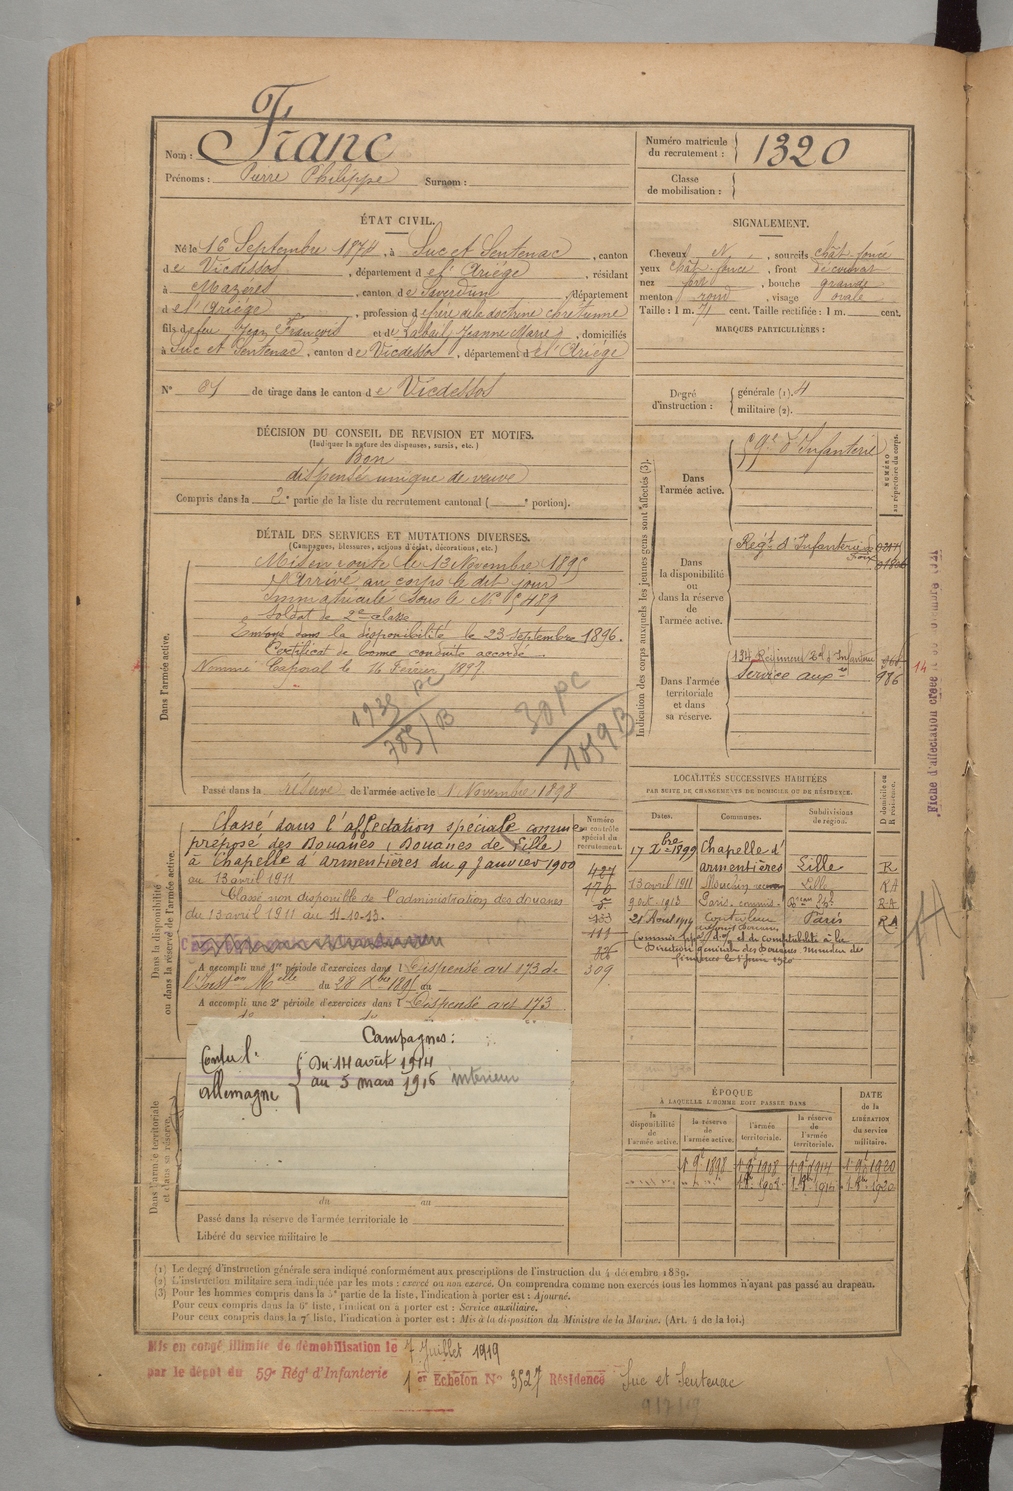 Nom : Franc
Prénoms : Pierre Philippe Surnom :
Numéro matricule du recrutement : 1320
Classe de mobilisation :
ÉTAT CIVIL.
Né le 16 Septembre 1874, à Suc et Sentenac, canton
de Vicdessos, département de l'Ariège, résidant
à Mazères, canton de Saverdun, département
de l'Ariège, profession de frère de la doctrine chrétienne
fils de feu Jean François et de Jeanne Marie, domiciliés
à Suc et Sentenac, canton de Vicdessos, département de l'Ariège
N° de tirage dans le canton de Vicdessos
SIGNALEMENT.
Cheveux N, sourcils chât. foncé
yeux chât. foncé, front découvert
nez fort, bouche grande
menton rond, visage ovale
Taille : 1 m. 71 cent. Taille rectifiée : 1 m. cent.
MARQUES PARTICULIÈRES :
Degré d'instruction : générale (1). 4
militaire (2).
DÉCISION DU CONSEIL DE REVISION ET MOTIFS.
(Indiquer la nature des dispenses, sursis, etc.)
Bon
dispensé unique de veuve
Compris dans la 2e partie de la liste du recrutement cantonal ( e portion).
DÉTAIL DES SERVICES ET MUTATIONS DIVERSES.
(Campagnes, blessures, actions d'éclat, décorations, etc.)
Dans l'armée active.
Mis en route le 13 Novembre 1895
Arrivé au corps le dit jour
Immatriculé sous le N°
Soldat de 2e classe
Envoyé dans la disponibilité le 23 septembre 1896.
Certificat de bonne conduite accordé.
Nommé Caporal le 14 Février 1897
1059 B
Passé dans la réserve de l'armée active le 1 Novembre 1898
Indication des corps auxquels les jeunes gens sont affectés (3).
NUMÉRO au répertoire du corps.
Dans l'armée active.
59e d'Infanterie
Dans la disponibilité ou dans la réserve de l'armée active.
Régt d'Infanterie de Foix
Dans l'armée territoriale et dans sa réserve.
134 Régiment Tal d'Infanterie
Service auxre 986
14
Fiche d'affectation créée le
Dans la disponibilité ou dans la réserve de l'armée active.
Classé dans l'affectation spéciale comme
préposé des Douanes (Douanes de Lille)
à Chapelle d'armentières du 9 Janvier 1900
au 13 avril 1911
Classé non disponible de l'administration des douanes
du 13 avril 1911 au 11-10-13.
A accompli une 1re période d'exercices dans l dispensé art 173 de
l'Inston Melle du 28 Xbre 1895 au
A accompli une 2e période d'exercices dans l Dispensé art 173
Numéro au contrôle spécial du recrutement.
427
176
5
133
111
309
LOCALITÉS SUCCESSIVES HABITÉES
PAR SUITE DE CHANGEMENTS DE DOMICILE OU DE RÉSIDENCE.
Dates. Communes. Subdivisions de région. D domicile ou R résidence.
17 Xbre 1899 Chapelle d'armentières Lille R
13 avril 1911 Mouchin Lille RA
9 oct 1913 Paris. commis. RA
21 Août 1919 Contrôleur Paris RA
Commis et de comptabilité à la
Direction générale des Douanes
Campagnes :
Contre l'Allemagne
Du 14 août 1914
au 5 mars 1916 intérieur
Dans l'armée territoriale et dans sa réserve.
du au
Passé dans la réserve de l'armée territoriale le
Libéré du service militaire le
ÉPOQUE
À LAQUELLE L'HOMME DOIT PASSER DANS
la disponibilité de l'armée active. la réserve de l'armée active. l'armée territoriale. la réserve de l'armée territoriale.
DATE de la LIBÉRATION du service militaire.
1 9e 1898 1 9e 1908 1 9e 1914 1 9e 1920
(1) Le degré d'instruction générale sera indiqué conformément aux prescriptions de l'instruction du 4 décembre 1889.
(2) L'instruction militaire sera indiquée par les mots : exercé ou non exercé. On comprendra comme non exercés tous les hommes n'ayant pas passé au drapeau.
(3) Pour les hommes compris dans la 5e partie de la liste, l'indication à porter est : Ajourné.
Pour ceux compris dans la 6e liste, l'indication à porter est : Service auxiliaire.
Pour ceux compris dans la 7e liste, l'indication à porter est : Mis à la disposition du Ministre de la Marine. (Art. 4 de la loi.)
Mis en congé illimité de démobilisation le 7 Juillet 1919
par le dépôt du 59e Régt d'Infanterie 1er Echelon N° 3527 Résidence Suc et Sentenac